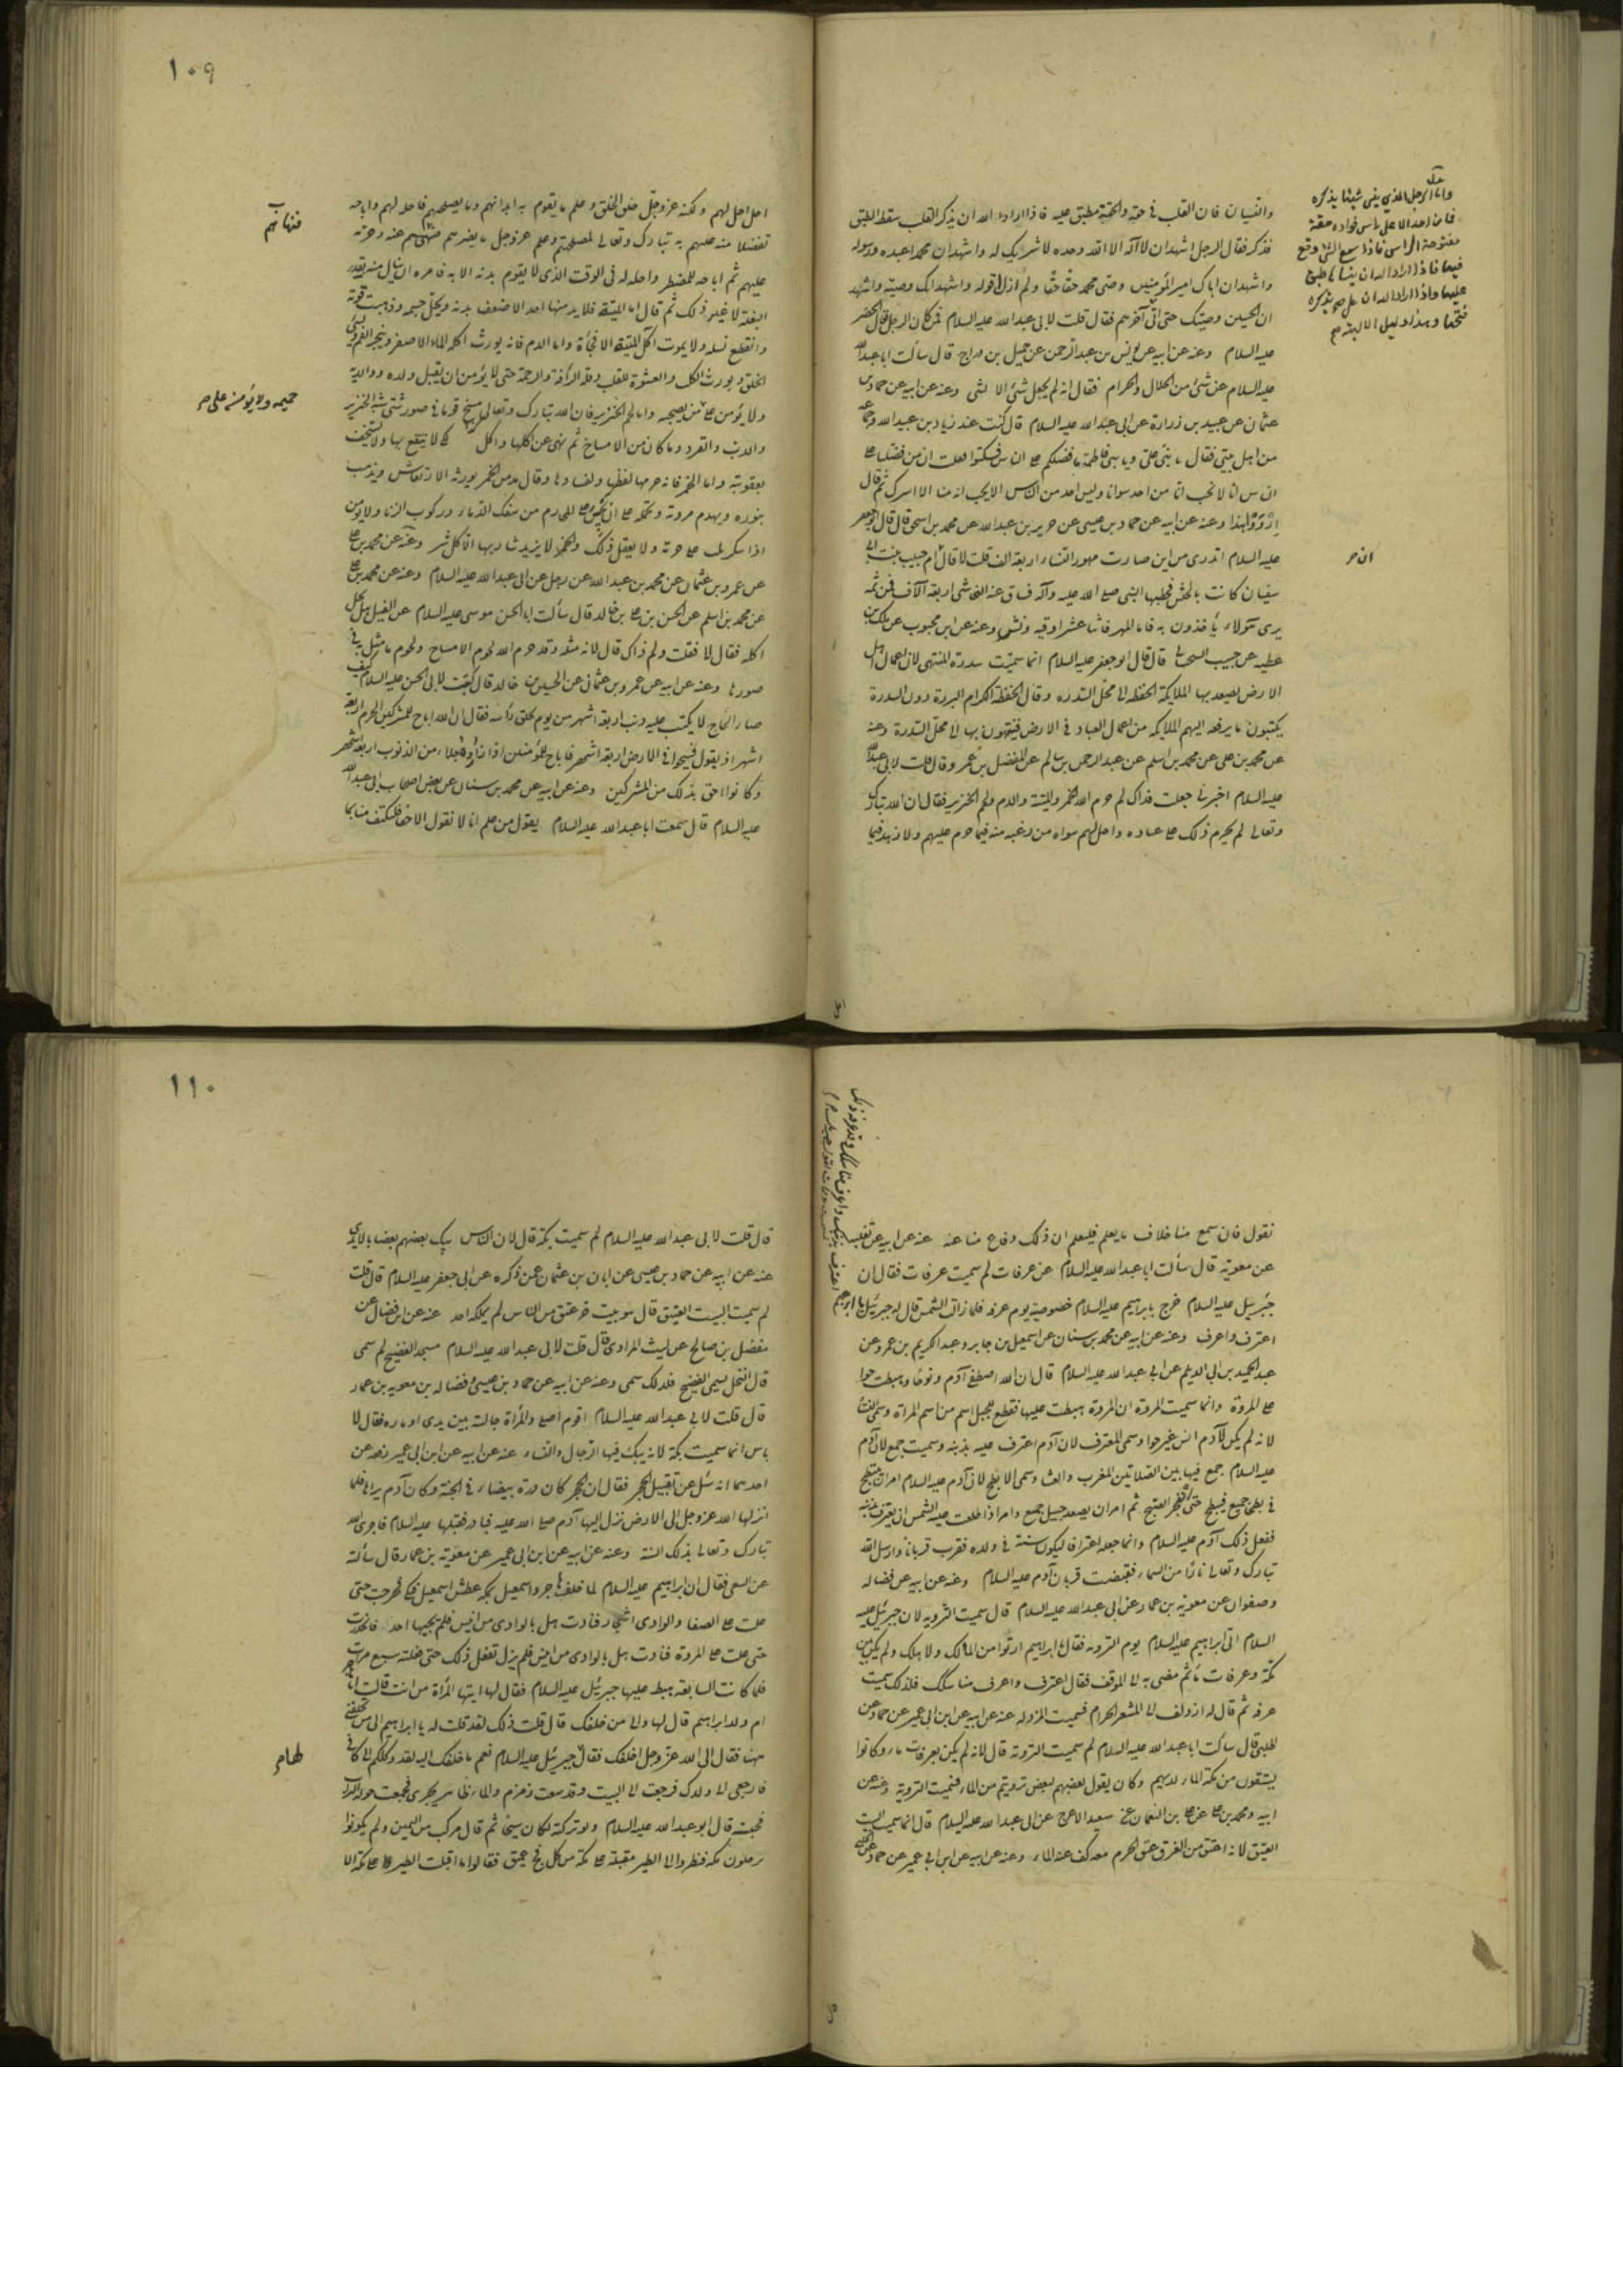 والنسيان فان القلب في حقة والحقة مطبق عليه فاذا اراد الله ان يذكر القلب سقط الطبق
فذكر فقال الرجل اشهد ان لا اله الا الله وحده لا شريك له واشهد ان محمد اعبده ورسوله
واشهد ان اباك امير المؤمنين وصى محمد حقا حقا ولم ازل اقوله واشهد انك وصيته واشهد
ان الحسين وصيتك حتى اتى آخرهم فقال قلت لابي عبد الله عليه السلام فمن كان الرجل قال الخضر
عليه السلام وعنه عن ابيه عن يونس بن عبد الرحمن عن جميل بن دراج قال سألت ابا عبد الله
عليه السلام عن شئ من الحلال والحرام فقال انه لم يجعل شئ الا لشئ وعنه عن ابيه عن حماد بن
عثمان عن عبيد بن زرارة عن ابي عبد الله عليه السلام قال كنت عند زياد بن عبيد الله وجماعة
من اهل بيتي فقال يا بنى على ويا بنى فاطمة ما فضلكم على الناس فسكتوا فقلت ان من فضلنا على
الناس انا لا نحب انا من احد سوانا وليس احد من الناس الا يحب انه منا الا اشرك ثم قال
اردوا هذا وعنه عن ابيه عن حماد بن عيسى عن حريز بن عبد الله عن محمد بن اسحق قال قال ابو جعفر
عليه السلام اتدرى من اين صارت مهور النساء اربعة الف قلت لا قال ام حبيب بنت ابى
سفيان كانت بالحبش فخطبها النبى صلى الله عليه وآله فساق عنه النجاشى اربعة آلاف فمن ثمه
يرى هؤلاء يأخذون به فاما المهر فاثنا عشر اوقيه ونش وعنه عن ابن محبوب عن مالك بن
عطيه عن حبيب السجستانى قال قال ابو جعفر عليه السلام انما سميت سدرة المنتهى لان اعمال اهل
الارض يصعد بها الملايكة الحفظه الى محل السدره وقال الحفظة الكرام البررة دون السدرة
يكتبون ما يرفعه اليهم الملايكه من اعمال العباد في الارض فينتهون بها الى محل السدرة وعنه
عن محمد بن على عن محمد بن اسلم عن عبد الرحمن بن سالم عن المفضل بن عمر وقال قلت لابي عبد الله
عليه السلام اخبرنى جعلت فداك لم حرم الله الخمر والميتة والدم ولحم الخنزير فقال ان الله تبارك
وتعالى لم يحرم ذلك على عباده واحل لهم سواه من رغبه منه فيما حرم عليهم ولا زهد فيما
واما الرجل الذي ينسى شيئا يذكره
فما من احد الا على راس فواده حقة
مفتوحة الراس فاذا سمع الشئ وقع
فيها فاذا اراد الله ان ينسا ها طبق
عليها واذا اراد الله ان يذكره
فتحها وهذا دليل الالهية
١٠٩
احل احل لهم ولكنه عز وجل خلق الخلق وعلم ما يقوم به ابدانهم وما يصلحهم فاحله لهم واباحه
تفضلا منه عليهم به تبارك وتعالى لمصلحتهم وعلم عز وجل ما يضرهم فنهاهم عنه وحرمه
عليهم ثم اباحه للمضطر واحله له فى الوقت الذى لا يقوم بدنه الا به فامره ان ينال منه بقدر
البلغة لا غير ذلك ثم قال اما الميتة فلا يد منها احد الا ضعف بدنه ونحل جسمه وذهبت قوته
وانقطع نسله ولا يموت اكل الميتة الا فجأة واما الدم فانه يورث اكله الماء الاصفر
ولا يؤمن على من يصحبه واما لحم الخنزير فان الله تبارك وتعالى مسخ قوما فى صور شتى شبه الخنزير
والدب والقرد وما كان من الامساخ ثم نهى عن اكلها لكى لا ينتفع بها ولا يستخف
بعقوبته واما الخمر فانه حرمها لفعلها ولفسادها وقال مدمن الخمر يورثه الارتعاش ويذهب
بنوره ويهدم مروته وتحمله على ان يجسر على المحارم من سفك الدماء وركوب الزنا ولا يؤمن
اذا سكر ان يثب على حرمه ولا يعقل ذلك والخمر لا يزيد شاربها الا كل شر وعنه عن محمد بن على
عن عمرو بن عثمان عن محمد بن عبد الله عن رجل عن ابى عبد الله عليه السلام وعنه عن محمد بن على
عن محمد بن اسلم عن الحسن بن على بن خالد قال سألت ابا الحسن موسى عليه السلام عن الفيل هل يحل
اكله فقال لا فقلت ولم ذاك قال لانه مثله وقد حرم الله لحوم الامساخ ولحوم ما مثل به فى
صورها وعنه عن ابيه عن عمرو بن عثمان عن الحسين بن خالد قال قلت لابى الحسن عليه السلام كيف
صار الحاج لا يكتب عليه ذنب اربعة اشهر من يوم يحلق رأسه فقال ان الله اباح للمشركين الحرم اربعة
اشهر اذ يقول فسيحوا فى الارض اربعة اشهر فاباح للمؤمنين اذا زاروه جلاء من الذنوب اربعة اشهر
وكانوا احق بذلك من المشركين وعنه عن ابيه عن محمد بن سنان عن بعض اصحاب ابى عبد الله
عليه السلام قال سمعت ابا عبد الله عليه السلام يقول من علم انا لا نقول الا حقا فليكتف منا بما
حميمه ولا يؤمنه على
نقول فان سمع منا خلاف ما يعلم فليعلم ان ذلك دفاع منا عنه عنه عن ابيه عن
عن معوية قال سألت ابا عبد الله عليه السلام عن عرفات لم سميت عرفات فقال ان
جبرئيل عليه السلام خرج بابراهيم عليه السلام يوم عرفه فلما زالت الشمس قال له جبرئيل يا ابراهيم
اعترف واعرف وعنه عن ابيه عن محمد بن سنان عن اسمعيل بن جابر وعبد الكريم بن عمرو عن
عبد الحميد بن ابى الديلم عن ابى عبد الله عليه السلام قال ان الله اصطفى آدم ونوحا وهبطت حوا
على المروة وانما سميت المروه ان المروة هبطت عليها فقطع للجبل اسم من اسم المراة وسمى النسا
لانه لم يكن لآدم انس غير حوا وسمى المعترف لان آدم اعترف عليه بذنبه وسميت جمع لان آدم
عليه السلام جمع فيها بين الصلاتين المغرب والعشا وسمى الابطح لان آدم عليه السلام امر ان ينبطح
فى بطحا جميع فبطح حتى انفجر الصبح ثم امر ان يصعد جبل جمع وامر اذا طلعت عليه الشمس ان يعترف بذنبه
ففعل ذلك آدم عليه السلام وانما جعله اعترافا ليكون سنة فى ولده فقرب قربانا وارسل الله
تبارك وتعالى نارا من السماء فقبضت قربان آدم عليه السلام وعنه عن ابيه عن فضاله
وصفوان عن معوية بن عمار عن ابى عبد الله عليه السلام قال سميت التروية لان جبرئيل عليه
السلام اتى ابراهيم عليه السلام يوم الترويه فقال يا ابراهيم ارتو من الماء لك ولاهلك ولم يكن بين
مكة وعرفات ماء ثم مضى به الى الموقف فقال اعترف واعرف مناسكك فلذلك سميت
عرفه ثم قال له ازدلف الى المشعر الحرام فسميت المزدلفه عنه عن ابيه عن ابن ابى عمير عن حماد عن
الحلبى قال سألت ابا عبد الله عليه السلام لم سميت التروية قال لانه لم يكن بعرفات ماء وكانوا
يستقون من مكة الماء لريهم وكان يقول بعضهم لبعض ترويتم من الماء فسميت التروية وعنه عن
ابيه ومحمد بن على عن على بن النعمان عن سعيد الاعرج عن ابى عبد الله عليه السلام قال انما سميت البيت
العتيق لانه اعتق من الغرق عتق الحرم معه كف عنه الماء وعنه عن ابيه عن ابن ابى عمير عن حماد عن
١١٠
قال قلت لابى عبد الله عليه السلام لم سميت بكة قال لان الناس يبك بعضهم بعضا بالايدى
عنه عن ابيه عن حماد بن عيسى عن ابان بن عثمان عمن ذكره عن ابى جعفر عليه السلام قال قلت
لم سميت البيت العتيق قال هو بيت حر عتيق من الناس لم يملكه احد عنه عن ابن فضال عن
مفضل بن صالح عن ليث المرادى قال قلت لابى عبد الله عليه السلام مسجد الفضيخ لم سمى
قال النخل يسمى الفضيخ فلذلك سمى وعنه عن ابيه عن حماد بن عيسى وفضاله بن معويه بن عمار
قال قلت لابى عبد الله عليه السلام اقوم اصلى والمرأة جالسة بين يدى او ماره فقال لا
باس انما سميت بكة لانه يبك فيها الرجال والنساء عنه عن ابيه عن ابن ابى عمير رفعه عن
احدهما انه سئل عن تقبيل الحجر فقال ان الحجر كان درة بيضاء فى الجنة وكان آدم يراها فلما
انزلها الله عز وجل الى الارض نزل اليها آدم صلى الله عليه فبادر فقبلها عليه السلام فاجرى الله
تبارك وتعالى بذلك السنة وعنه عن ابيه عن ابن ابى عمير عن معوية بن عمار قال سألته
عن السعى فقال ان ابراهيم عليه السلام لما خلف هاجر واسمعيل بمكه عطش اسمعيل فبكى فخرجت حتى
علت على الصفا والوادى اشجار فنادت هل بالوادى من انيس فلم يجبها احد فانحدرت
حتى علت على المروة فنادت هل بالوادى من انيس فلم يزل تفعل ذلك حتى فعلته سبع مرات
فلما كانت السابعة هبط عليها جبرئيل عليه السلام فقال لها ايتها المرأة من انت قالت انا هاجر
ام ولد ابراهيم قال لها والى من خلفك قال قلت ذلك لقد قلت له يا ابراهيم الى من تخلفنى
ههنا فقال الى الله عز وجل اخلفك فقال جبرئيل عليه السلام نعم ما خلفك اليه لقد وكلكم الى كافى
فارجعى الى ولدك فرجعت الى البيت وقد نبعت زمزم والماء ظاهر يجرى فجمعت حوله التراب
فحبسته قال ابو عبد الله عليه السلام ولو تركته لكان سيحا ثم قال مر ركب من اليمن ولم يكونوا
يدخلون مكه فنظروا الى الطير مقبلة على مكة من كل فج عميق فقالوا ما اقبلت الطير على مكة الا